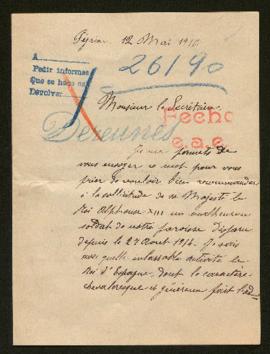 12 Mai 1916
A
Pedir informes
Que se haga
Devolver
26190
Monsieur le Secrétaire
Fecho
e.a.e.
Je me permets de
vous envoyer ce mot pour vous
prier de vouloir bien recommander
à la sollicitude de sa Majesté le
Roi Alphonse XIII un malheureux
soldat de notre paroisse disparu
depuis le 27 Août 1914. Je sais
avec quelle inlassable activité le
Roi d'Espagne, dont le caractère
chevaleresque et généreux fait l'ad